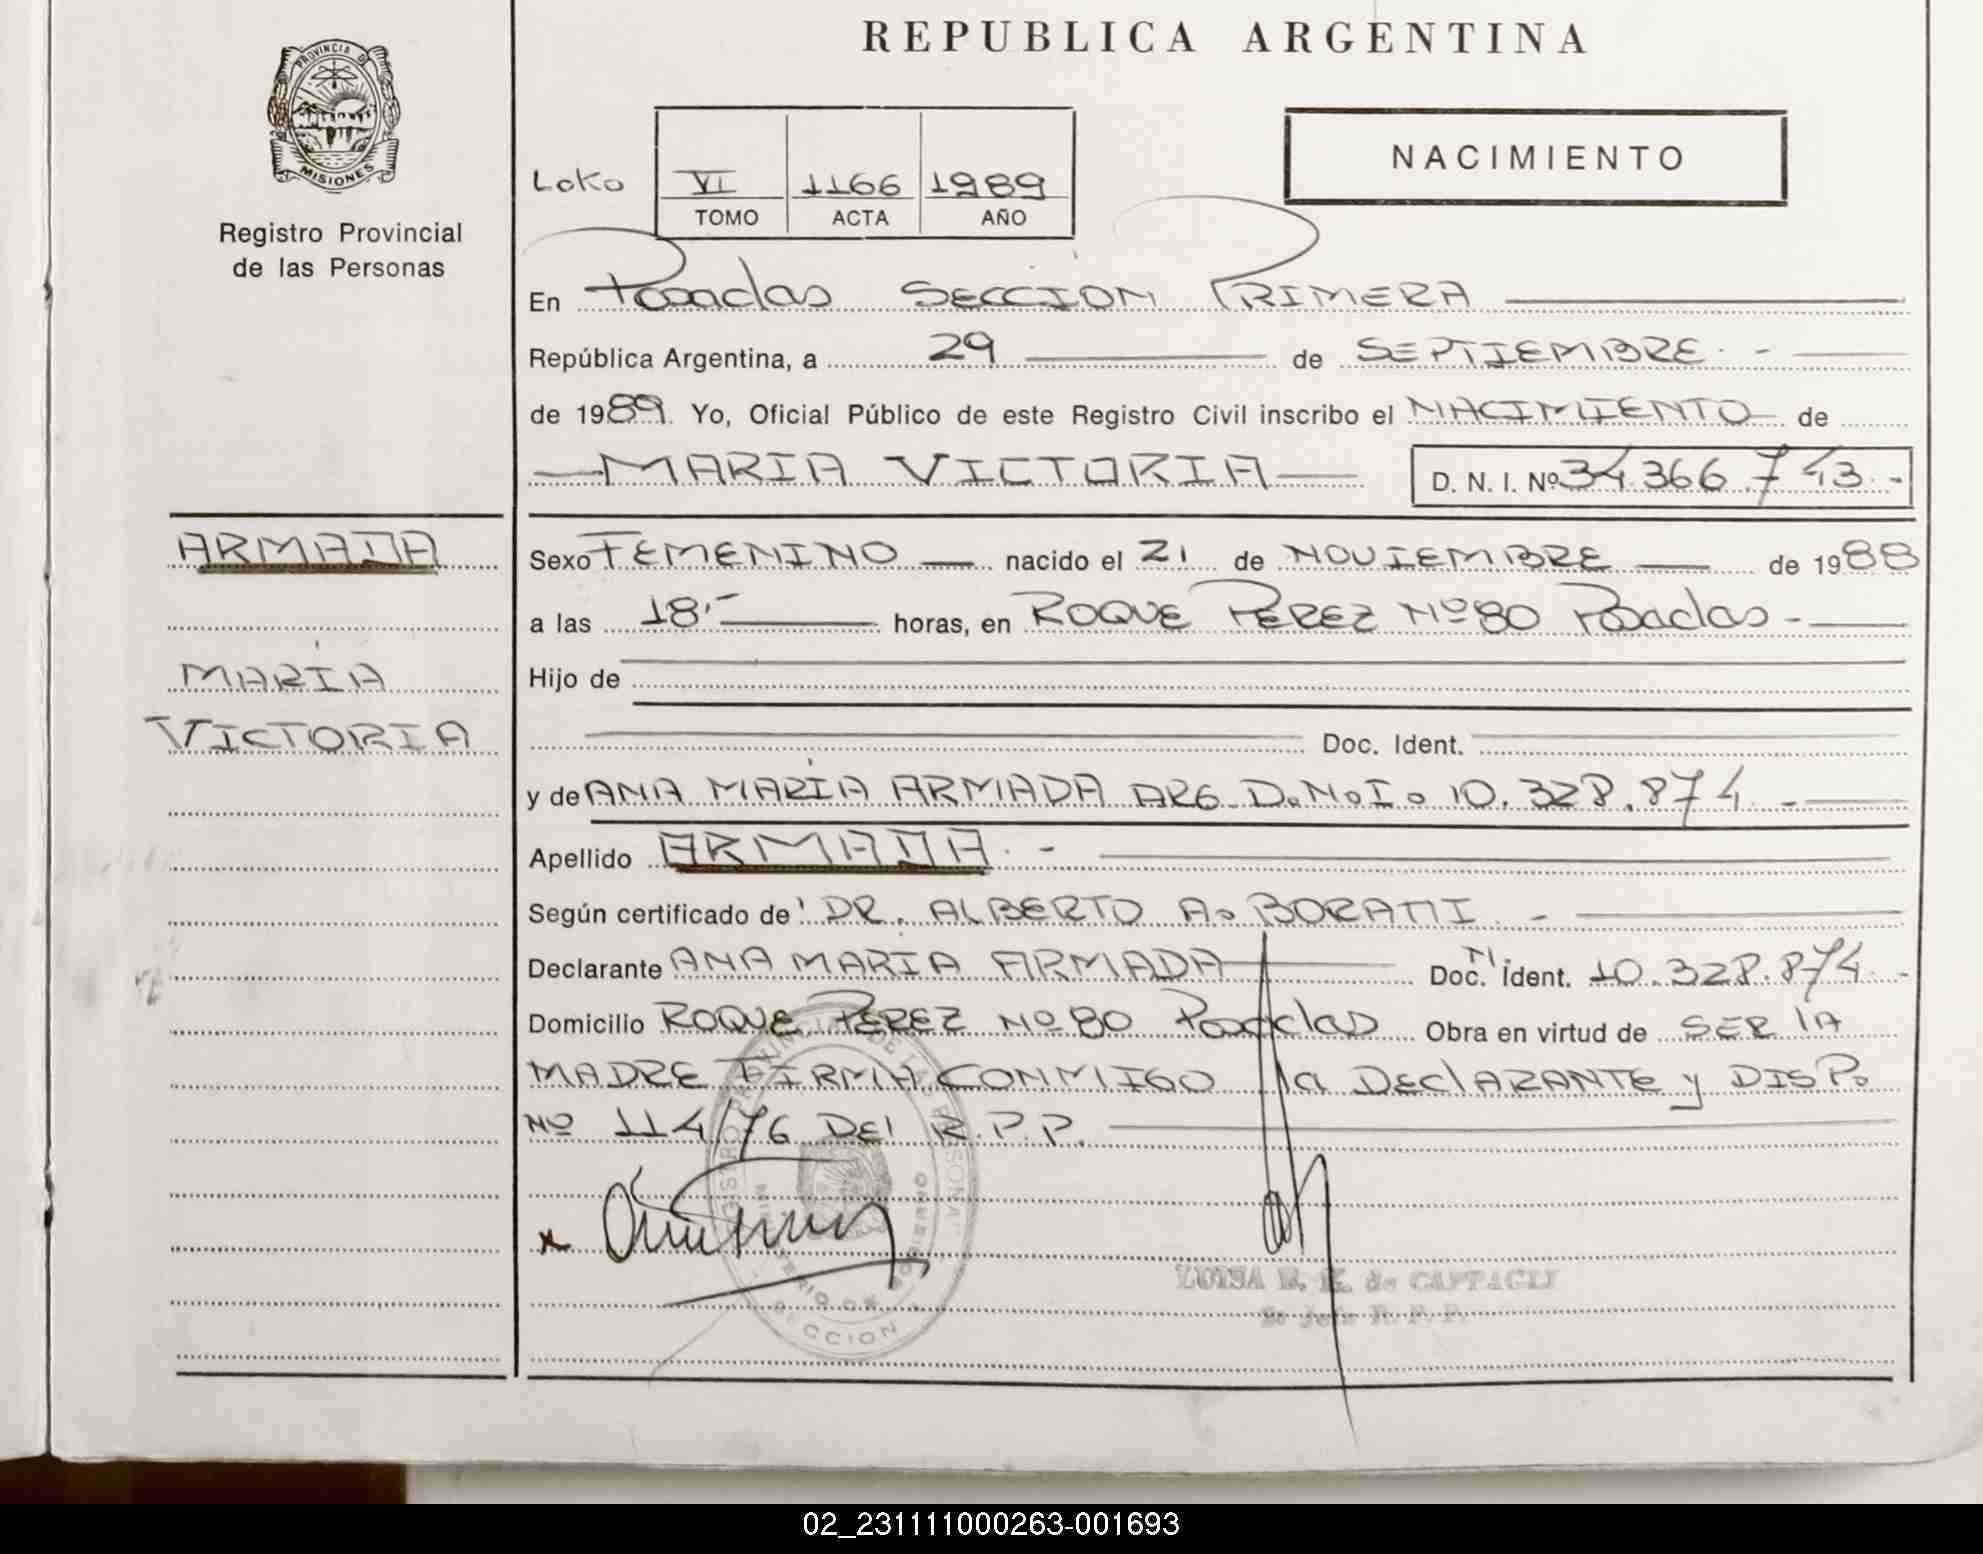 REPUBLICA ARGENTINA
PROVINCIA DE
MISIONES
Registro Provincial
de las Personas
NACIMIENTO
VI 1166 1989
TOMO ACTA AÑO
En Posadas SECCION PRIMERA
República Argentina, a 29 de SEPTIEMBRE.-
de 1989. Yo, Oficial Público de este Registro Civil inscribo el NACIMIENTO de
MARIA VICTORIA D. N. I. Nº 34.366.743.-
ARMADA
MARIA
VICTORIA
Sexo FEMENINO nacido el 21 de NOVIEMBRE de 1988
a las 18.- horas, en ROQUE PEREZ Nº 80 Posadas -
Hijo de
Doc. Ident.
y de ANA MARIA ARMADA ARG. D.N.I. 10.328.874 -
Apellido ARMADA.-
Según certificado de DR. ALBERTO A. -
Declarante ANA MARIA ARMADA Doc. Ident. 10.328.874.-
Domicilio ROQUE PEREZ Nº 80 Posadas Obra en virtud de SER lA
MADRE FIRMA CONMIGO la DEClARANTE y DISP.
Nº 114/76 DEl R.P.P.
LUISA de
R. P. P.
SECCION
02_231111000263-001693